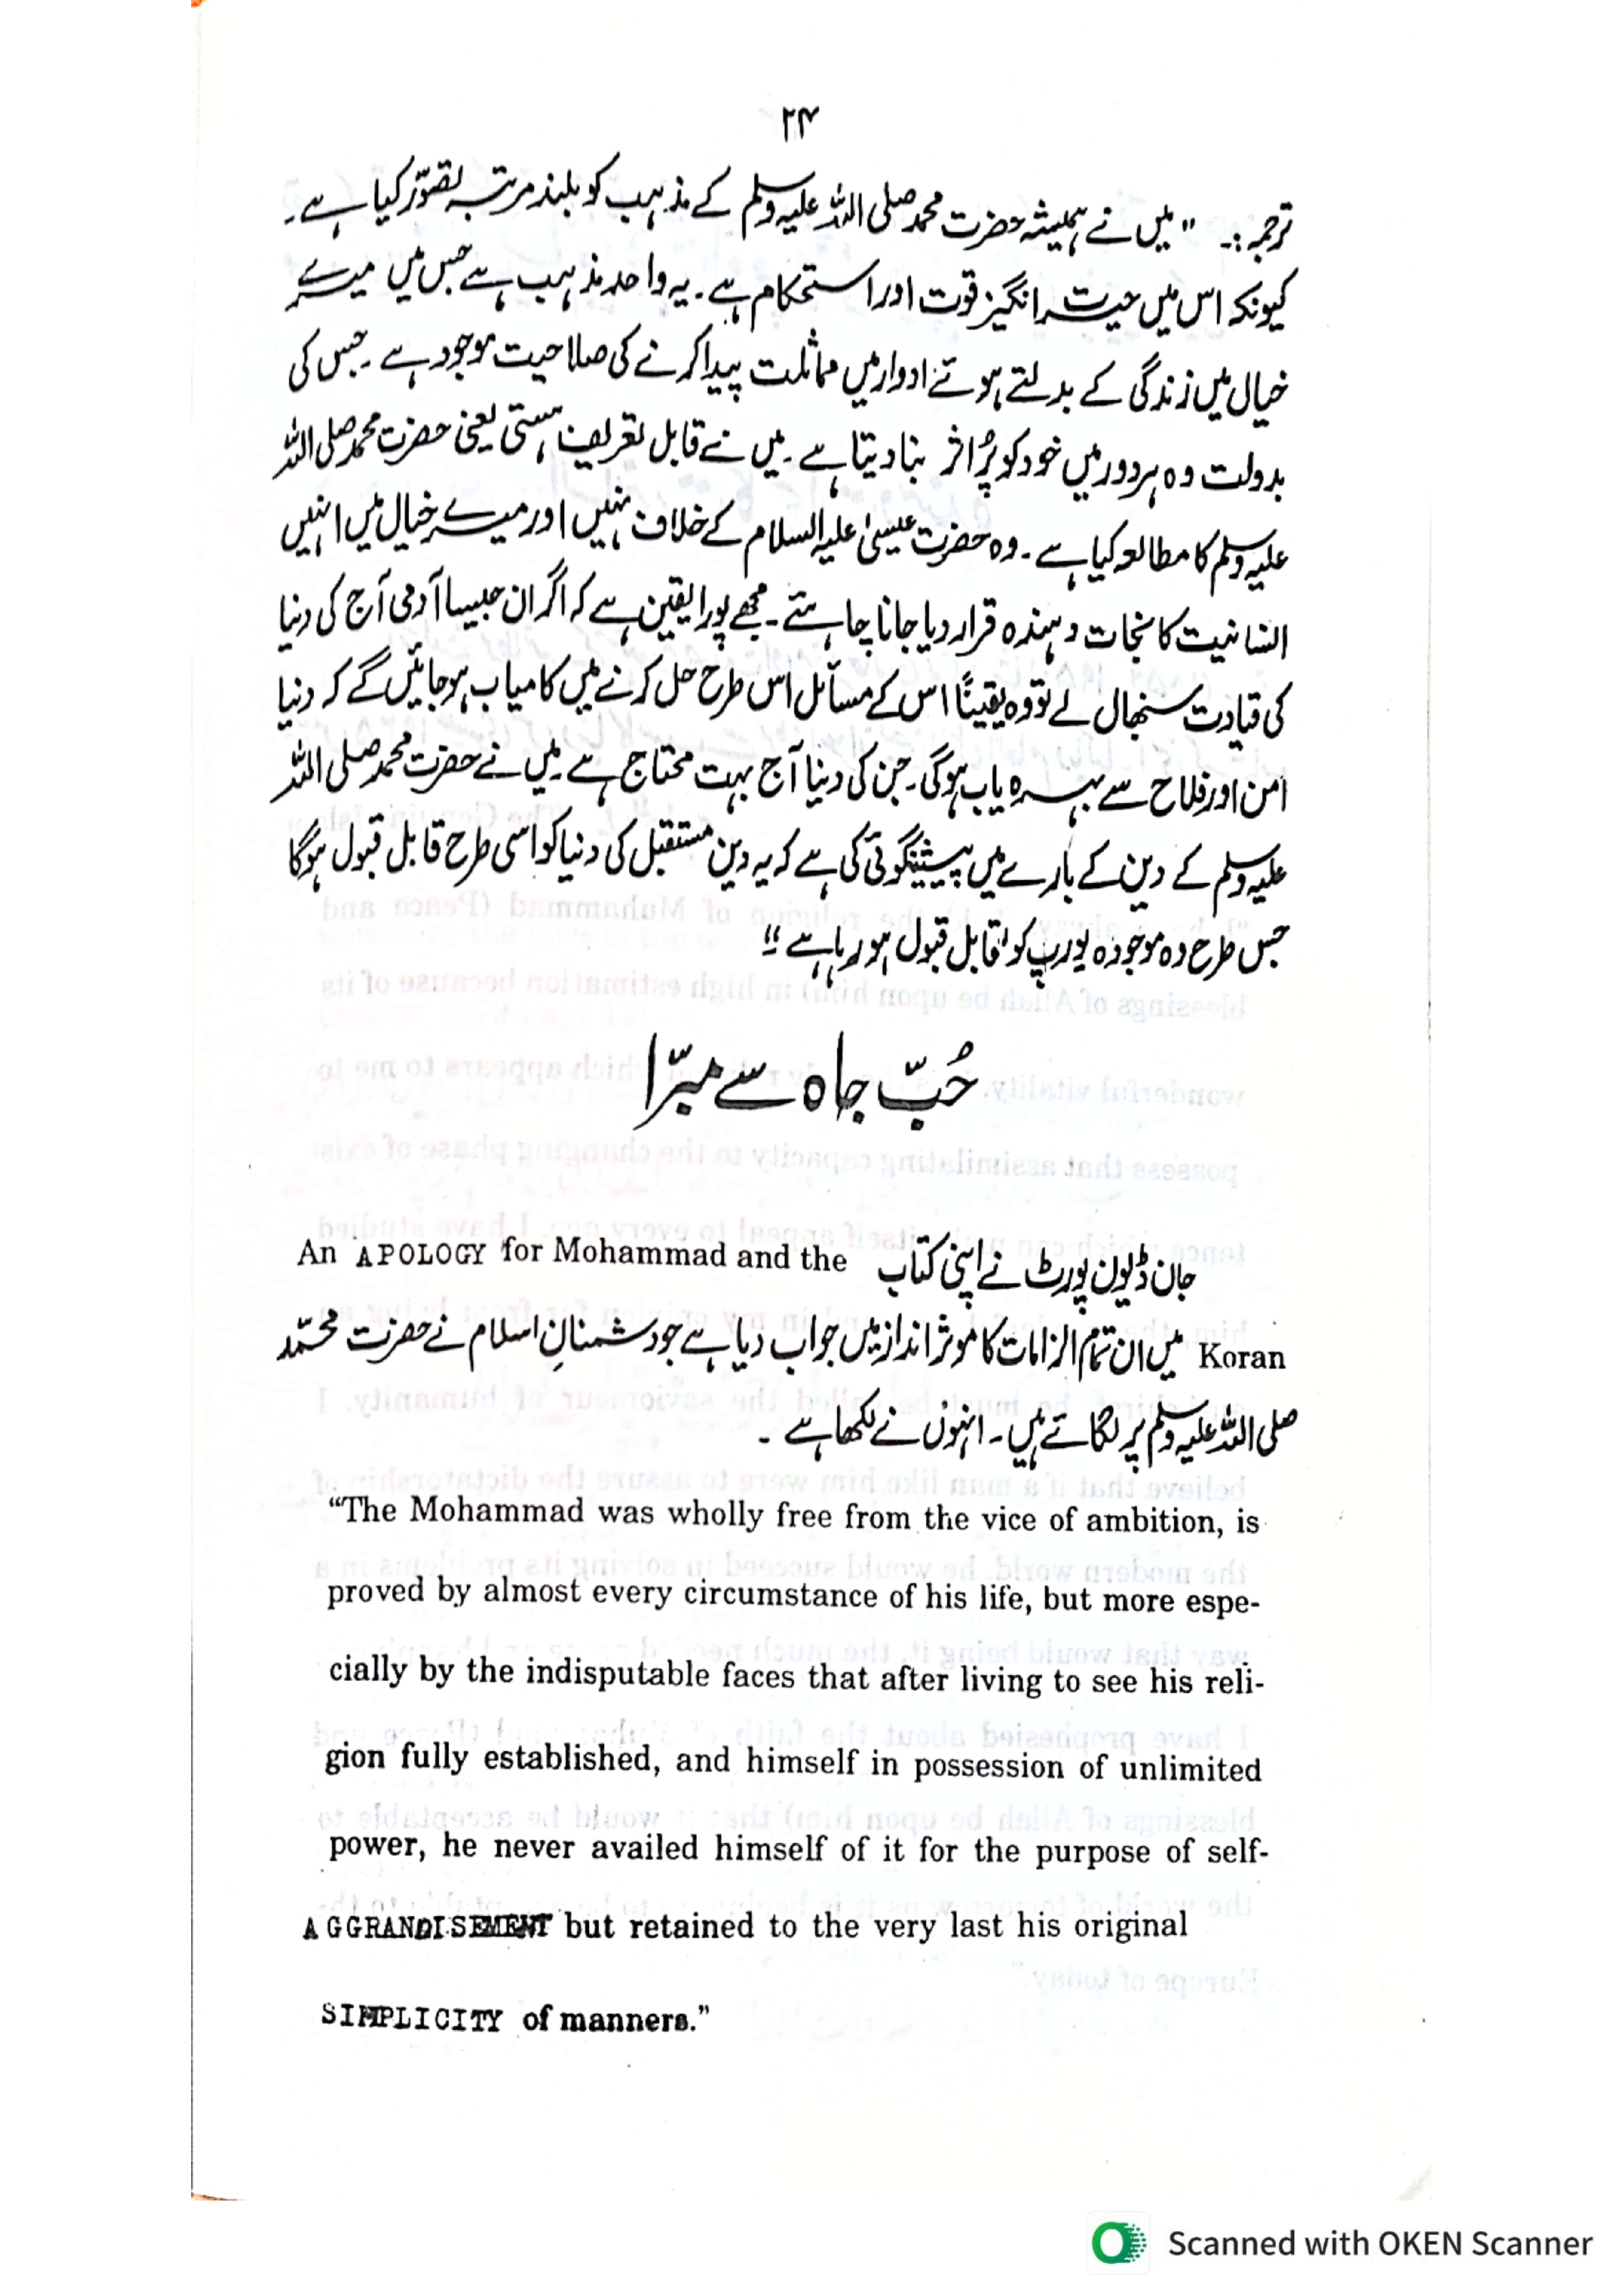 ۲۴
ترجمہ:۔ "میں نے ہمیشہ حضرت محمد صلی اللہ علیہ وسلم کے مذہب کو بلند مرتبہ تصوّر کیا ہے۔
کیونکہ اس میں حیرت انگیز قوت اور استحکام ہے۔ یہ واحد مذہب ہے جس میں میرے
خیال میں زندگی کے بدلتے ہوئے ادوار میں مماثلت پیدا کرنے کی صلاحیت موجود ہے۔ جس کی
بدولت وہ ہر دور میں خود کو پُر اثر بنا دیتا ہے۔ میں نے قابل تعریف ہستی یعنی حضرت محمد صلی اللہ
علیہ وسلم کا مطالعہ کیا ہے۔ وہ حضرت عیسیٰ علیہ السلام کے خلاف نہیں اور میرے خیال میں انہیں
انسانیت کا نجات دہندہ قرار دیا جانا چاہئے۔ مجھے پورا یقین ہے کہ اگر ان جیسا آدمی آج کی دنیا
کی قیادت سنبھال لے تو وہ یقیناً اس کے مسائل اس طرح حل کرنے میں کامیاب ہو جائیں گے کہ دنیا
امن اور فلاح سے بہرہ یاب ہوگی۔ جن کی دنیا آج بہت محتاج ہے۔ میں نے حضرت محمد صلی اللہ
علیہ وسلم کے دین کے بارے میں پیشینگوئی کی ہے کہ یہ دین مستقبل کی دنیا کو اسی طرح قابل قبول ہوگا
جس طرح وہ موجودہ یورپ کو قابل قبول ہو رہا ہے"
حُبّ جاہ سے مبرّا
جان ڈیون پورٹ نے اپنی کتاب An APOLOGY for Mohammad and the
Koran میں ان تمام الزامات کا موثر انداز میں جواب دیا ہے جو دشمنانِ اسلام نے حضرت محمّد
صلی اللہ علیہ وسلم پر لگائے ہیں۔ انہوں نے لکھا ہے۔
“The Mohammad was wholly free from the vice of ambition, is
proved by almost every circumstance of his life, but more espe-
cially by the indisputable faces that after living to see his reli-
gion fully established, and himself in possession of unlimited
power, he never availed himself of it for the purpose of self-
AGGRANDISEMENT but retained to the very last his original
SIMPLICITY of manners.”
Scanned with OKEN Scanner